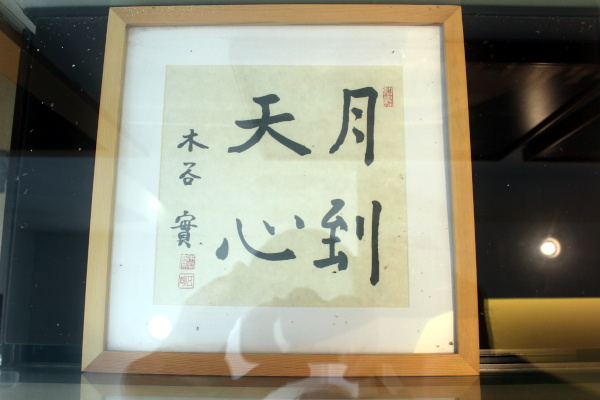 月到
天心
木谷實